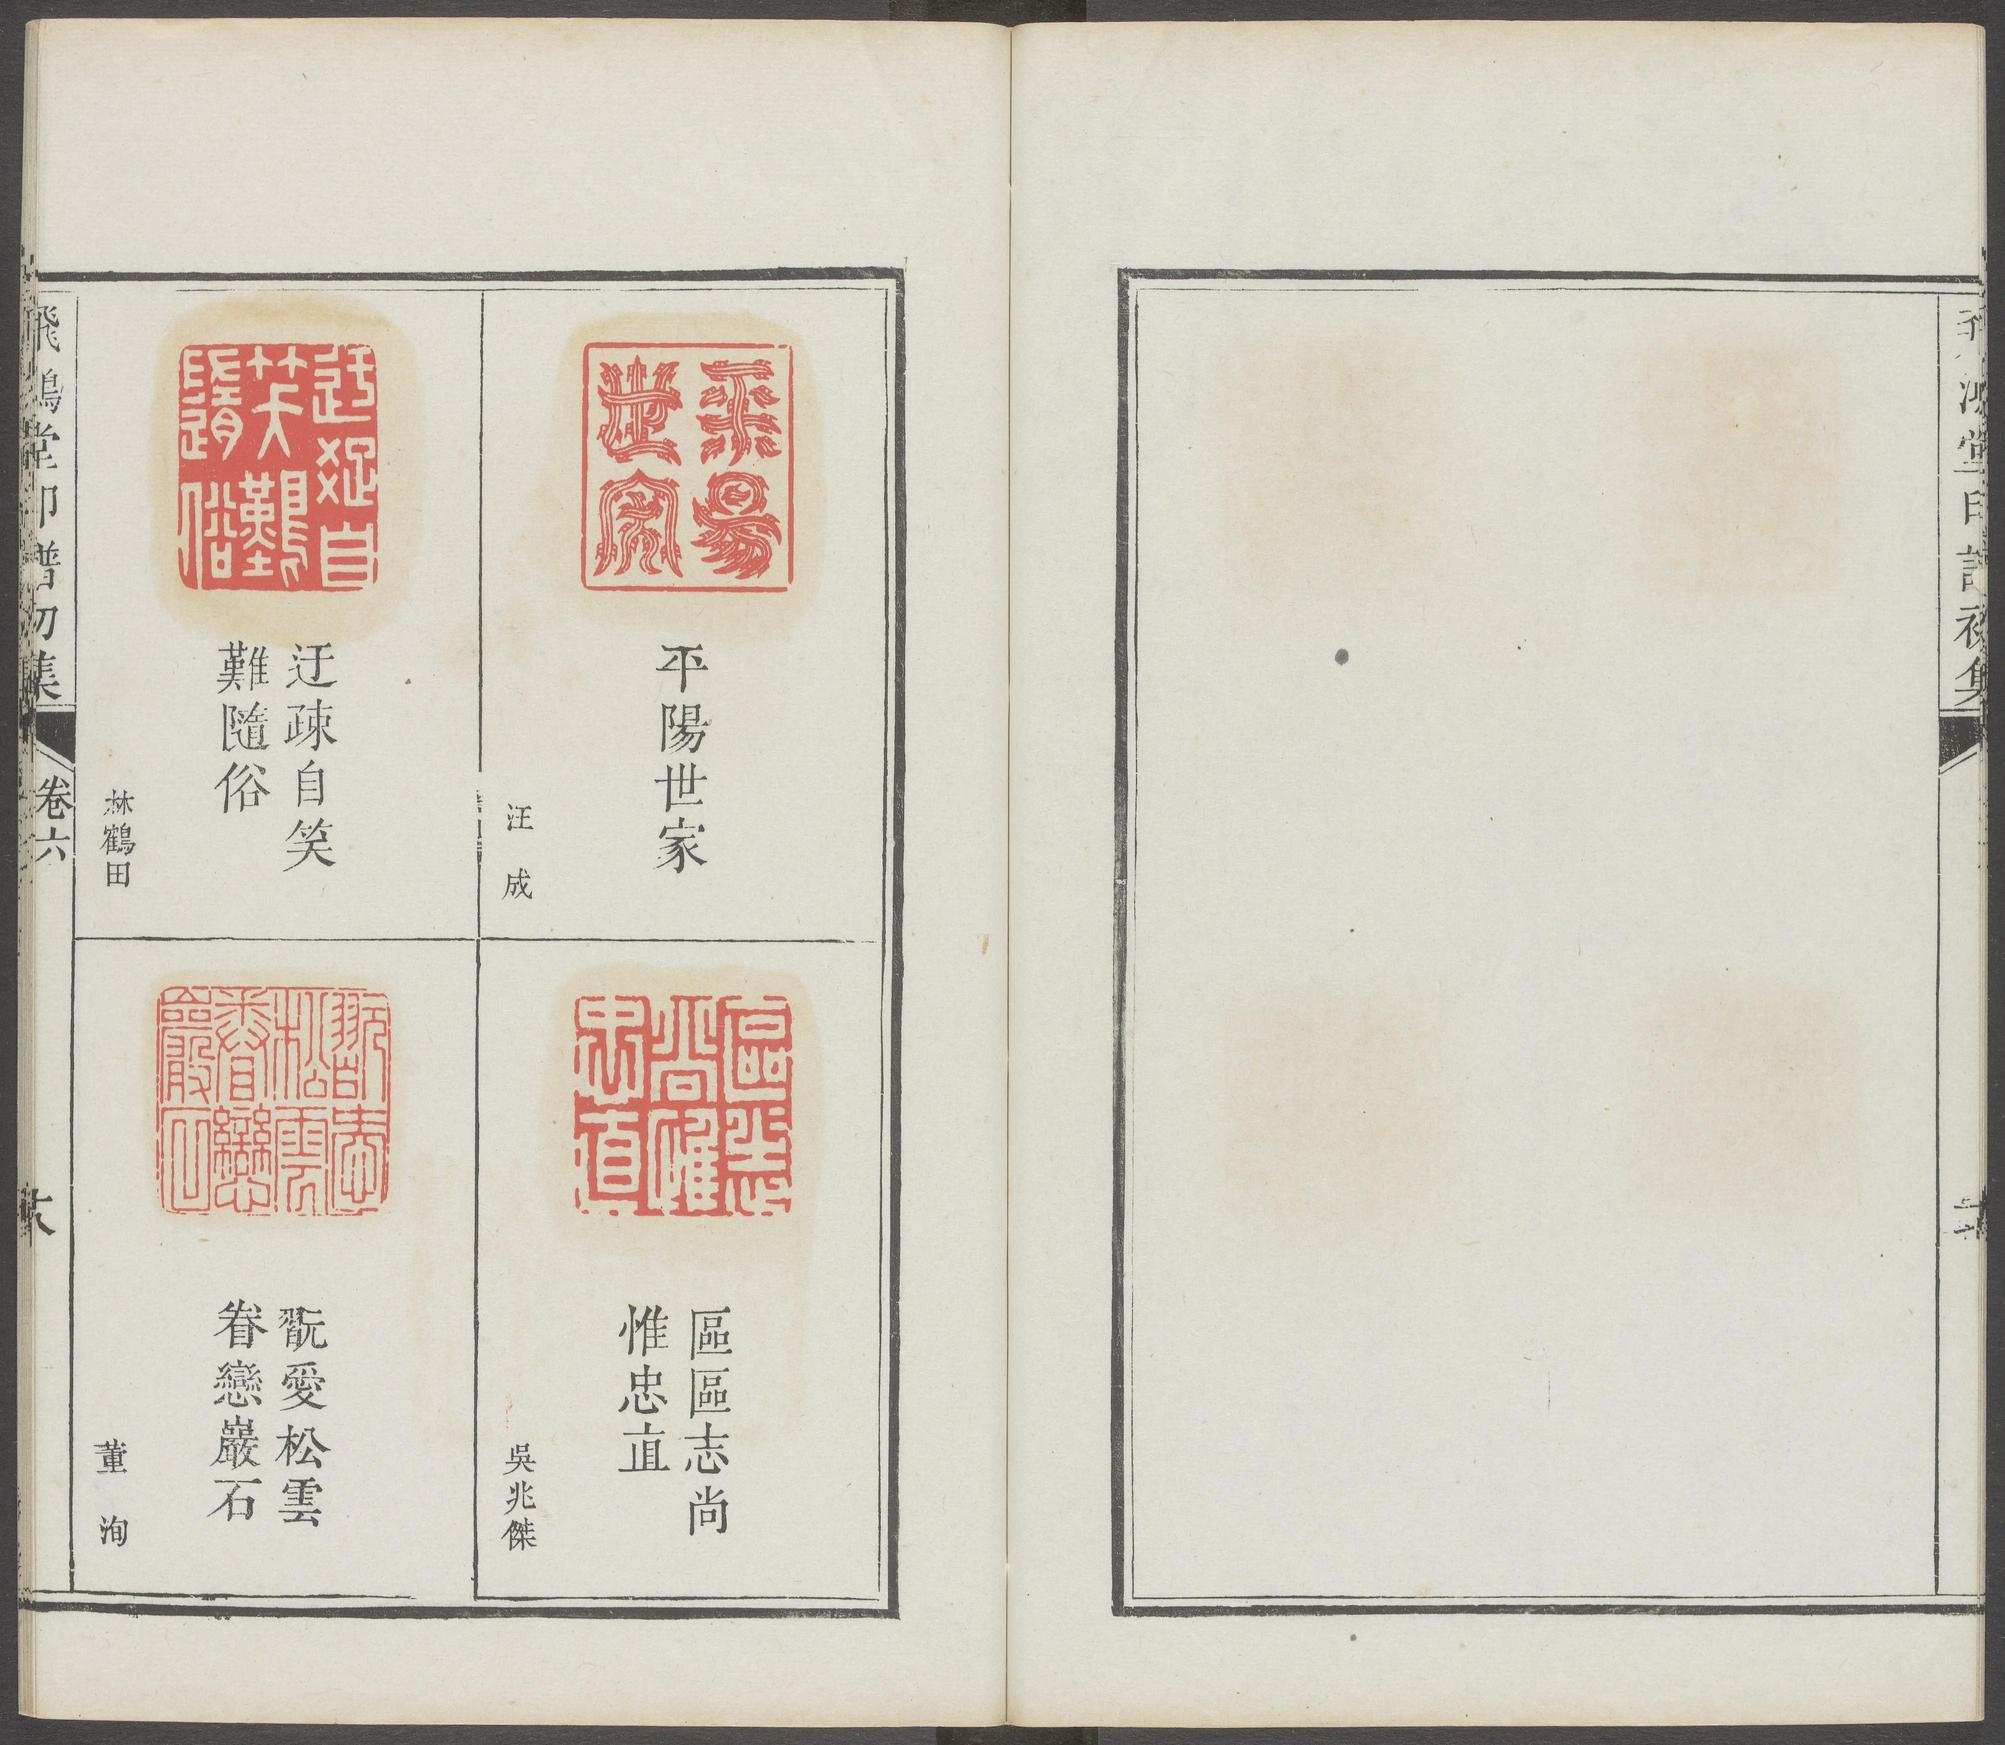 飛鴻堂印譜初集
平陽世家
平陽世家
汪成
迂疎自笑難隨俗
迂疎自笑
難隨俗
林鶴田
區區志尚惟忠直
區區志尚
惟忠直
吳兆傑
翫愛松雲眷戀巖石
翫愛松雲
眷戀巖石
董洵
飛鴻堂印譜初集
卷六